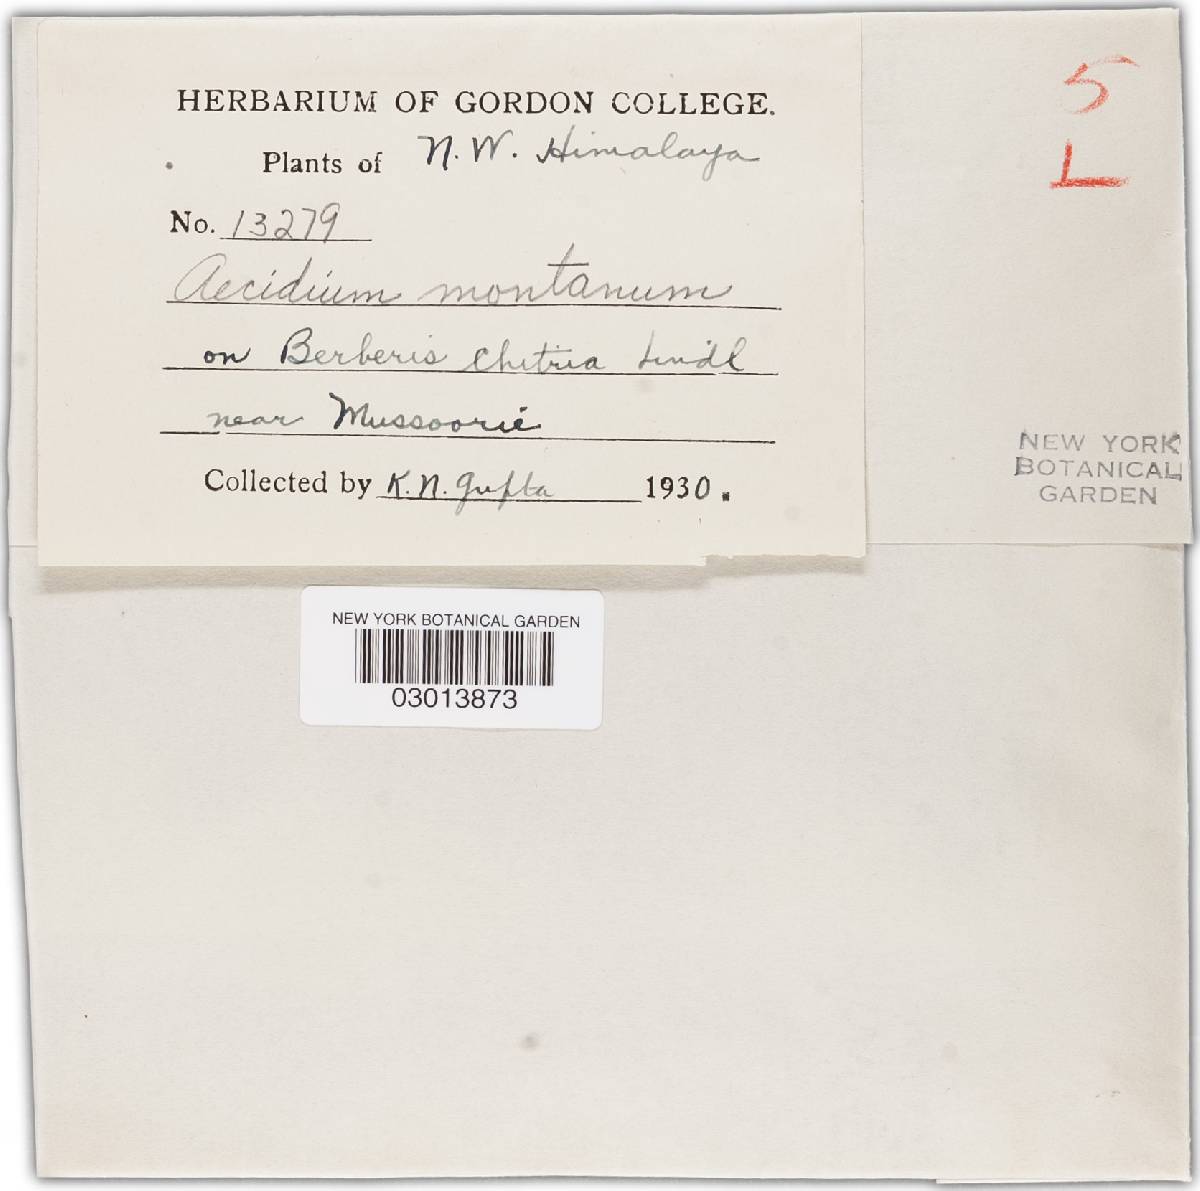 HERBARIUM OF GORDON COLLEGE.
Plants of N.W. Himalaya
No. 13279
Aecidium montanum
on Berberis chitria Lindl
near Mussoorie
Collected by K.N. Gupta 1930.
5
L
NEW YORK
BOTANICAL
GARDEN
NEW YORK BOTANICAL GARDEN
03013873